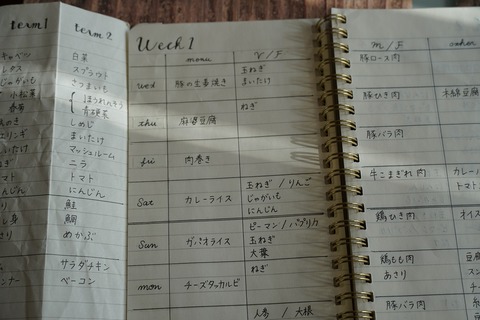 term1
キャベツ
レタス
じゃがいも
小松菜
春菊
にんじん
term2
白菜
スプラウト
さつまいも
ほうれん草
青梗菜
しめじ
まいたけ
マッシュルーム
ニラ
トマト
にんじん
鮭
鯛
めかぶ
サラダチキン
ベーコン
Week 1
menu
V / F
wed
豚の生姜焼き
玉ねぎ
まいたけ
thu
麻婆豆腐
ねぎ
fri
肉巻き
Sat
カレーライス
玉ねぎ / りんご
じゃがいも
にんじん
Sun
ガパオライス
ピーマン / パプリカ
玉ねぎ
大葉
mon
チーズタッカルビ
ねぎ
人参 / 大根
M / F
other
豚ロース肉
豚ひき肉
木綿豆腐
豚バラ肉
牛こまぎれ肉
カレー
トマト
鶏ひき肉
オイス
鶏もも肉
あさり
豆腐
豚バラ肉